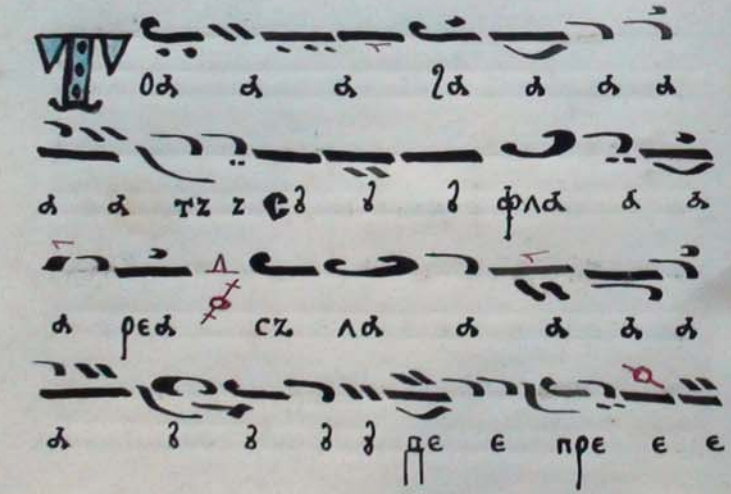 Т оа а а а а а
а а тъ ъ сꙋ ꙋ ꙋ фла а а
а реа съ ла а а а а
а ꙋ ꙋ ꙋ ꙋ де е пре е е